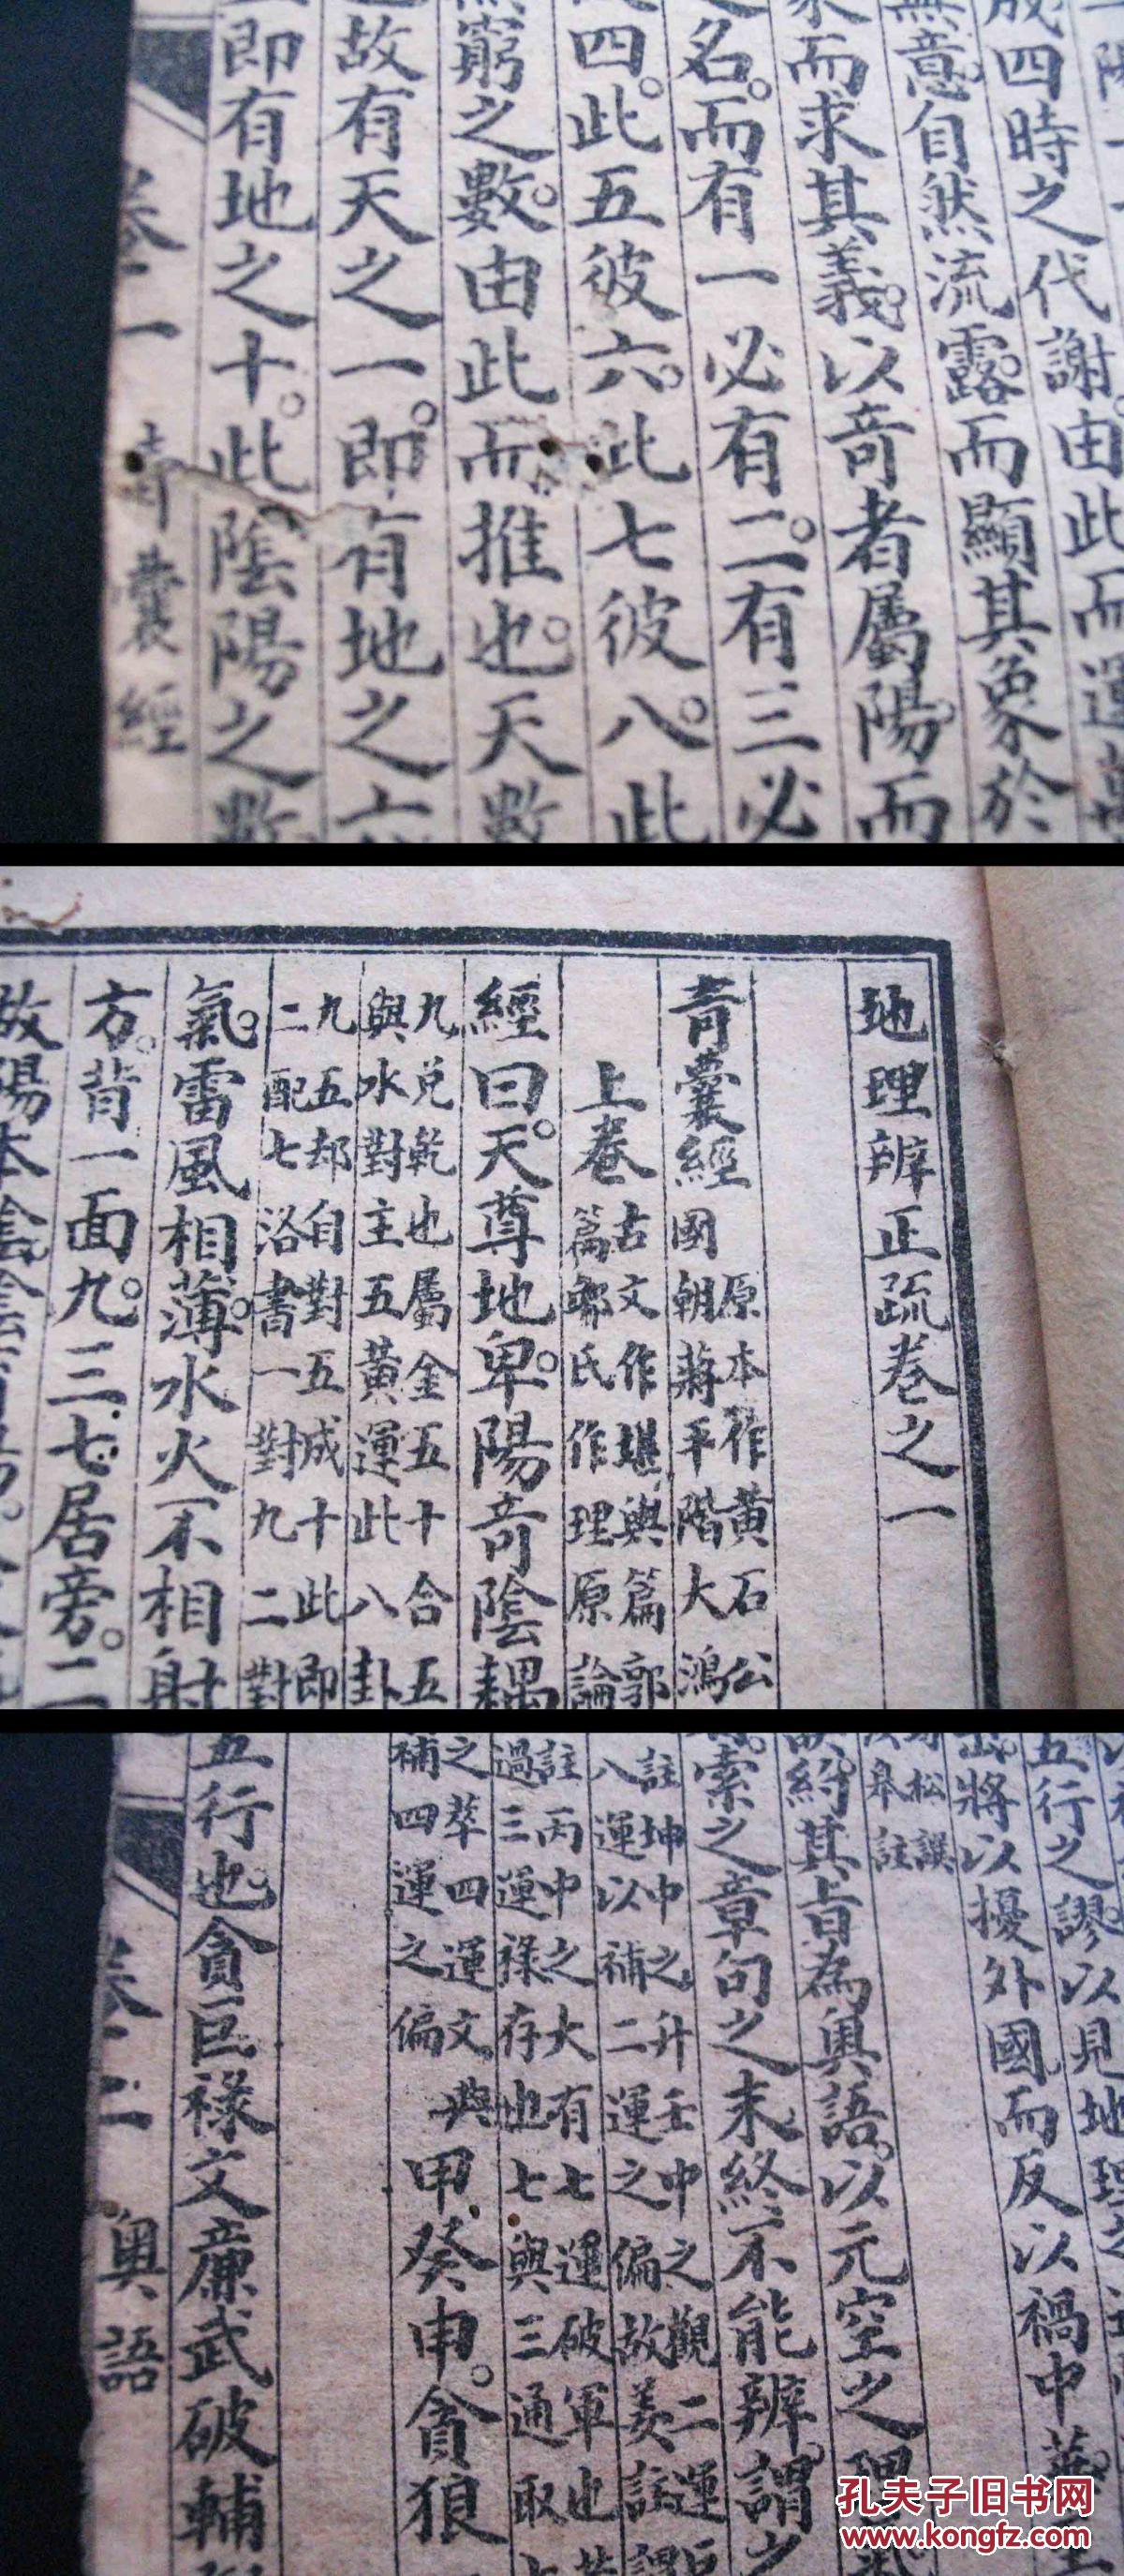 成四時之代謝。由此而運
無意。自然流露。而顯其象於
而求其義。以奇者屬陽。而
名。而有一必有二。有三必
四。此五彼六。此七彼八。此
窮之數。由此而推也。天數
故有天之一。即有地之六
即有地之十。此陰陽之數
卷一 青囊經
地理辨正疏卷之一
青囊經
原本作黃石公
國朝蔣平階大鴻
上卷
古文作堪輿篇郭
篇鄭氏作理原論
經曰。天尊地卑。陽奇陰耦
九兌乾也屬金五十合五
與水對主五黃運此八卦
九五却自對五成十此即
二配七洛書一對九二對
氣。雷風相薄。水火不相射
方。背一面。九三七居旁。二
故陽本陰
五行之謬。以見地理之
將以擾外國。而反以禍中華。
松誤
皋註
約其旨為奧語。以元空之理
索之章句之末。終不能辨。謂之
註坤中之升壬中之觀二運
八運以補二運之偏故姜註謂
註丙中之大有七運破軍也
過三運祿存也七與三通取
之萃四運文與
補四運之偏
甲癸申。貪狼
五行也。貪巨祿文廉武破輔
卷二 奧語
孔夫子旧书网
www.kongfz.com